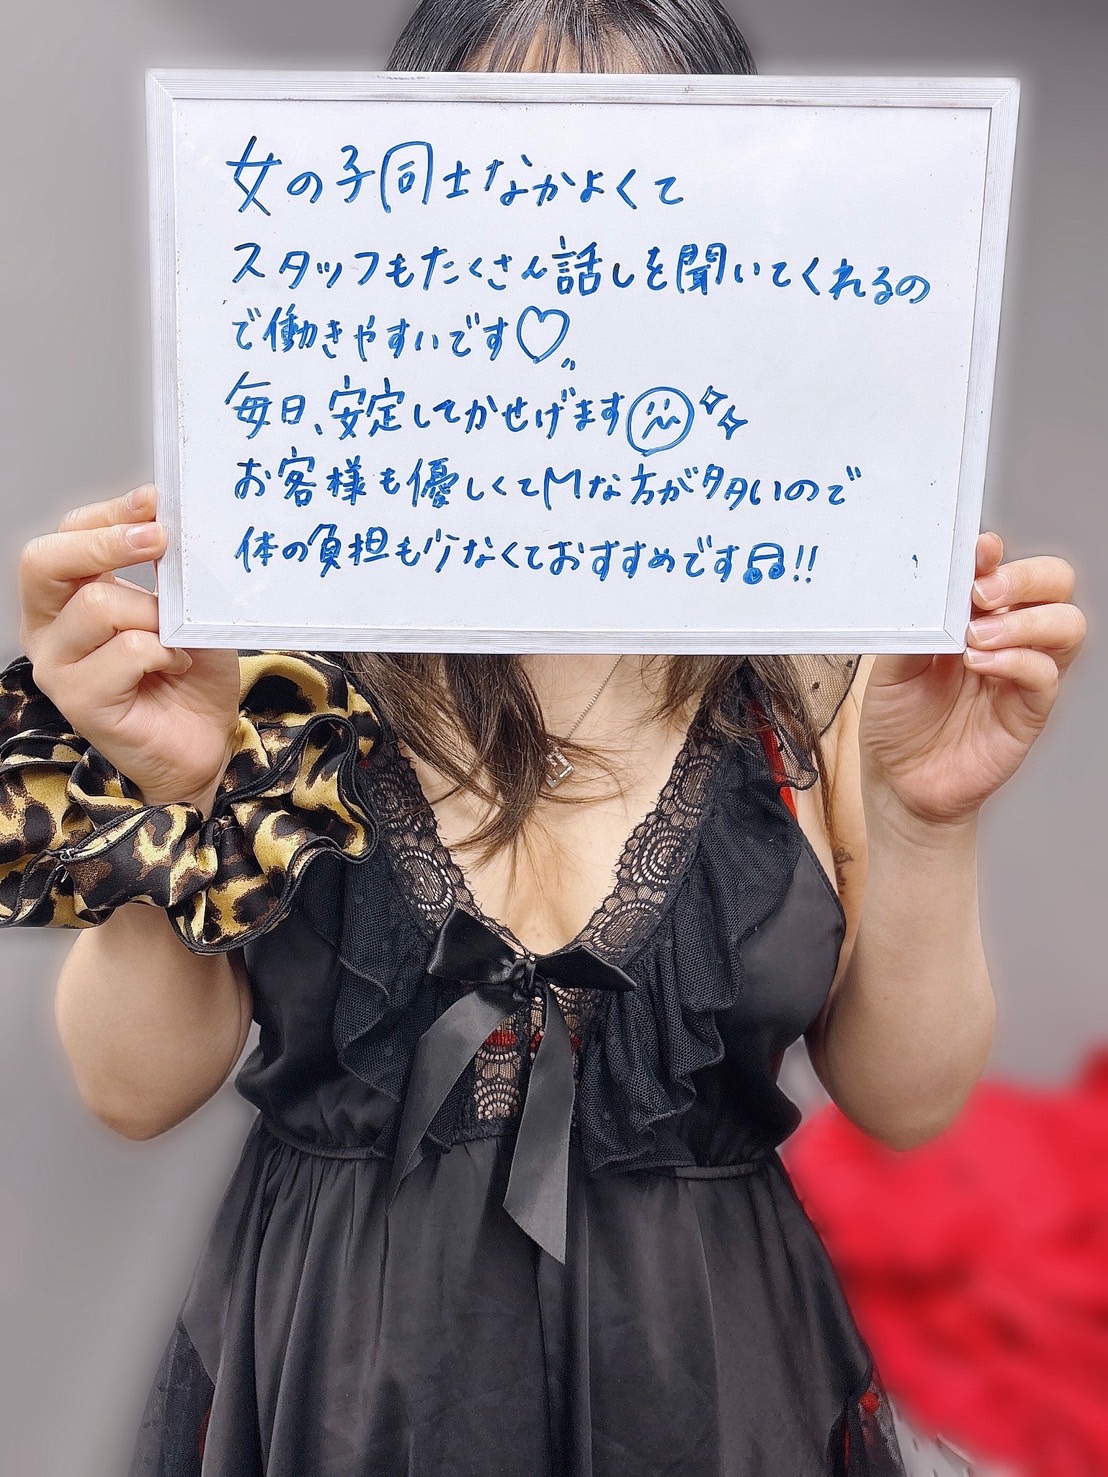 女の子同士なかよくて
スタッフもたくさん話しを聞いてくれるの
で働きやすいです♡
毎日、安定してかせげます
お客様も優しくてMな方が多いので
体の負担も少なくておすすめです♫!!